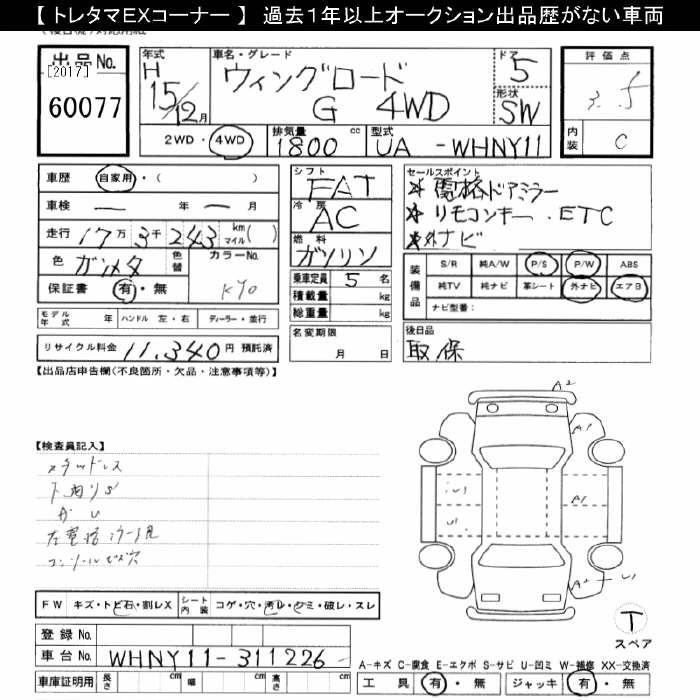 【 トレタマEXコーナー 】 過去1年以上オークション出品歴がない車両
出品No.
[2017]
60077
年式
H
15/12月
車名・グレード
ウィングロード
G 4WD
ドア
5
形状
SW
2WD・4WD
排気量
1800 cc
型式
UA-WHNY11
評価点
3.5
内装
C
車歴 自家用・( )
車検 ー 年 ー 月
走行 17万3千243 km マイル( )
色 ガンメタ 色替
カラーNo.
KY0
保証書 有・無
モデル年式 年 ハンドル 左・右 ディーラー・並行
リサイクル料金 11,340円 預託済
シフト
FAT
冷房
AC
燃料
ガソリン
乗車定員 5 名
積載量 kg
総重量 kg
名変期限
月 日
セールスポイント
*電格ドアミラー
*リモコンキー.ETC
*外ナビ
装備品
S/R 純A/W P/S P/W ABS
純TV 純ナビ 革シート 外ナビ エアB
ナビ型番:
後日品
取保
【出品店申告欄(不良箇所・欠品・注意事項等)】
【検査員記入】
スタッドレス
下廻りS
左電格ミラー
コンソールビス穴
A2
A1
A1
FW キズ・トビ石・割レX
シート内装 コゲ・穴・汚レ・クミ・破レ・スレ
登録No.
車台No. WHNY11-311226
車庫証明用 長さ cm 幅 cm 高さ cm
T
スペア
A-キズ C-腐食 E-エクボ S-サビ U-凹ミ W-補修 XX-交換済
工具 有・無 ジャッキ 有・無